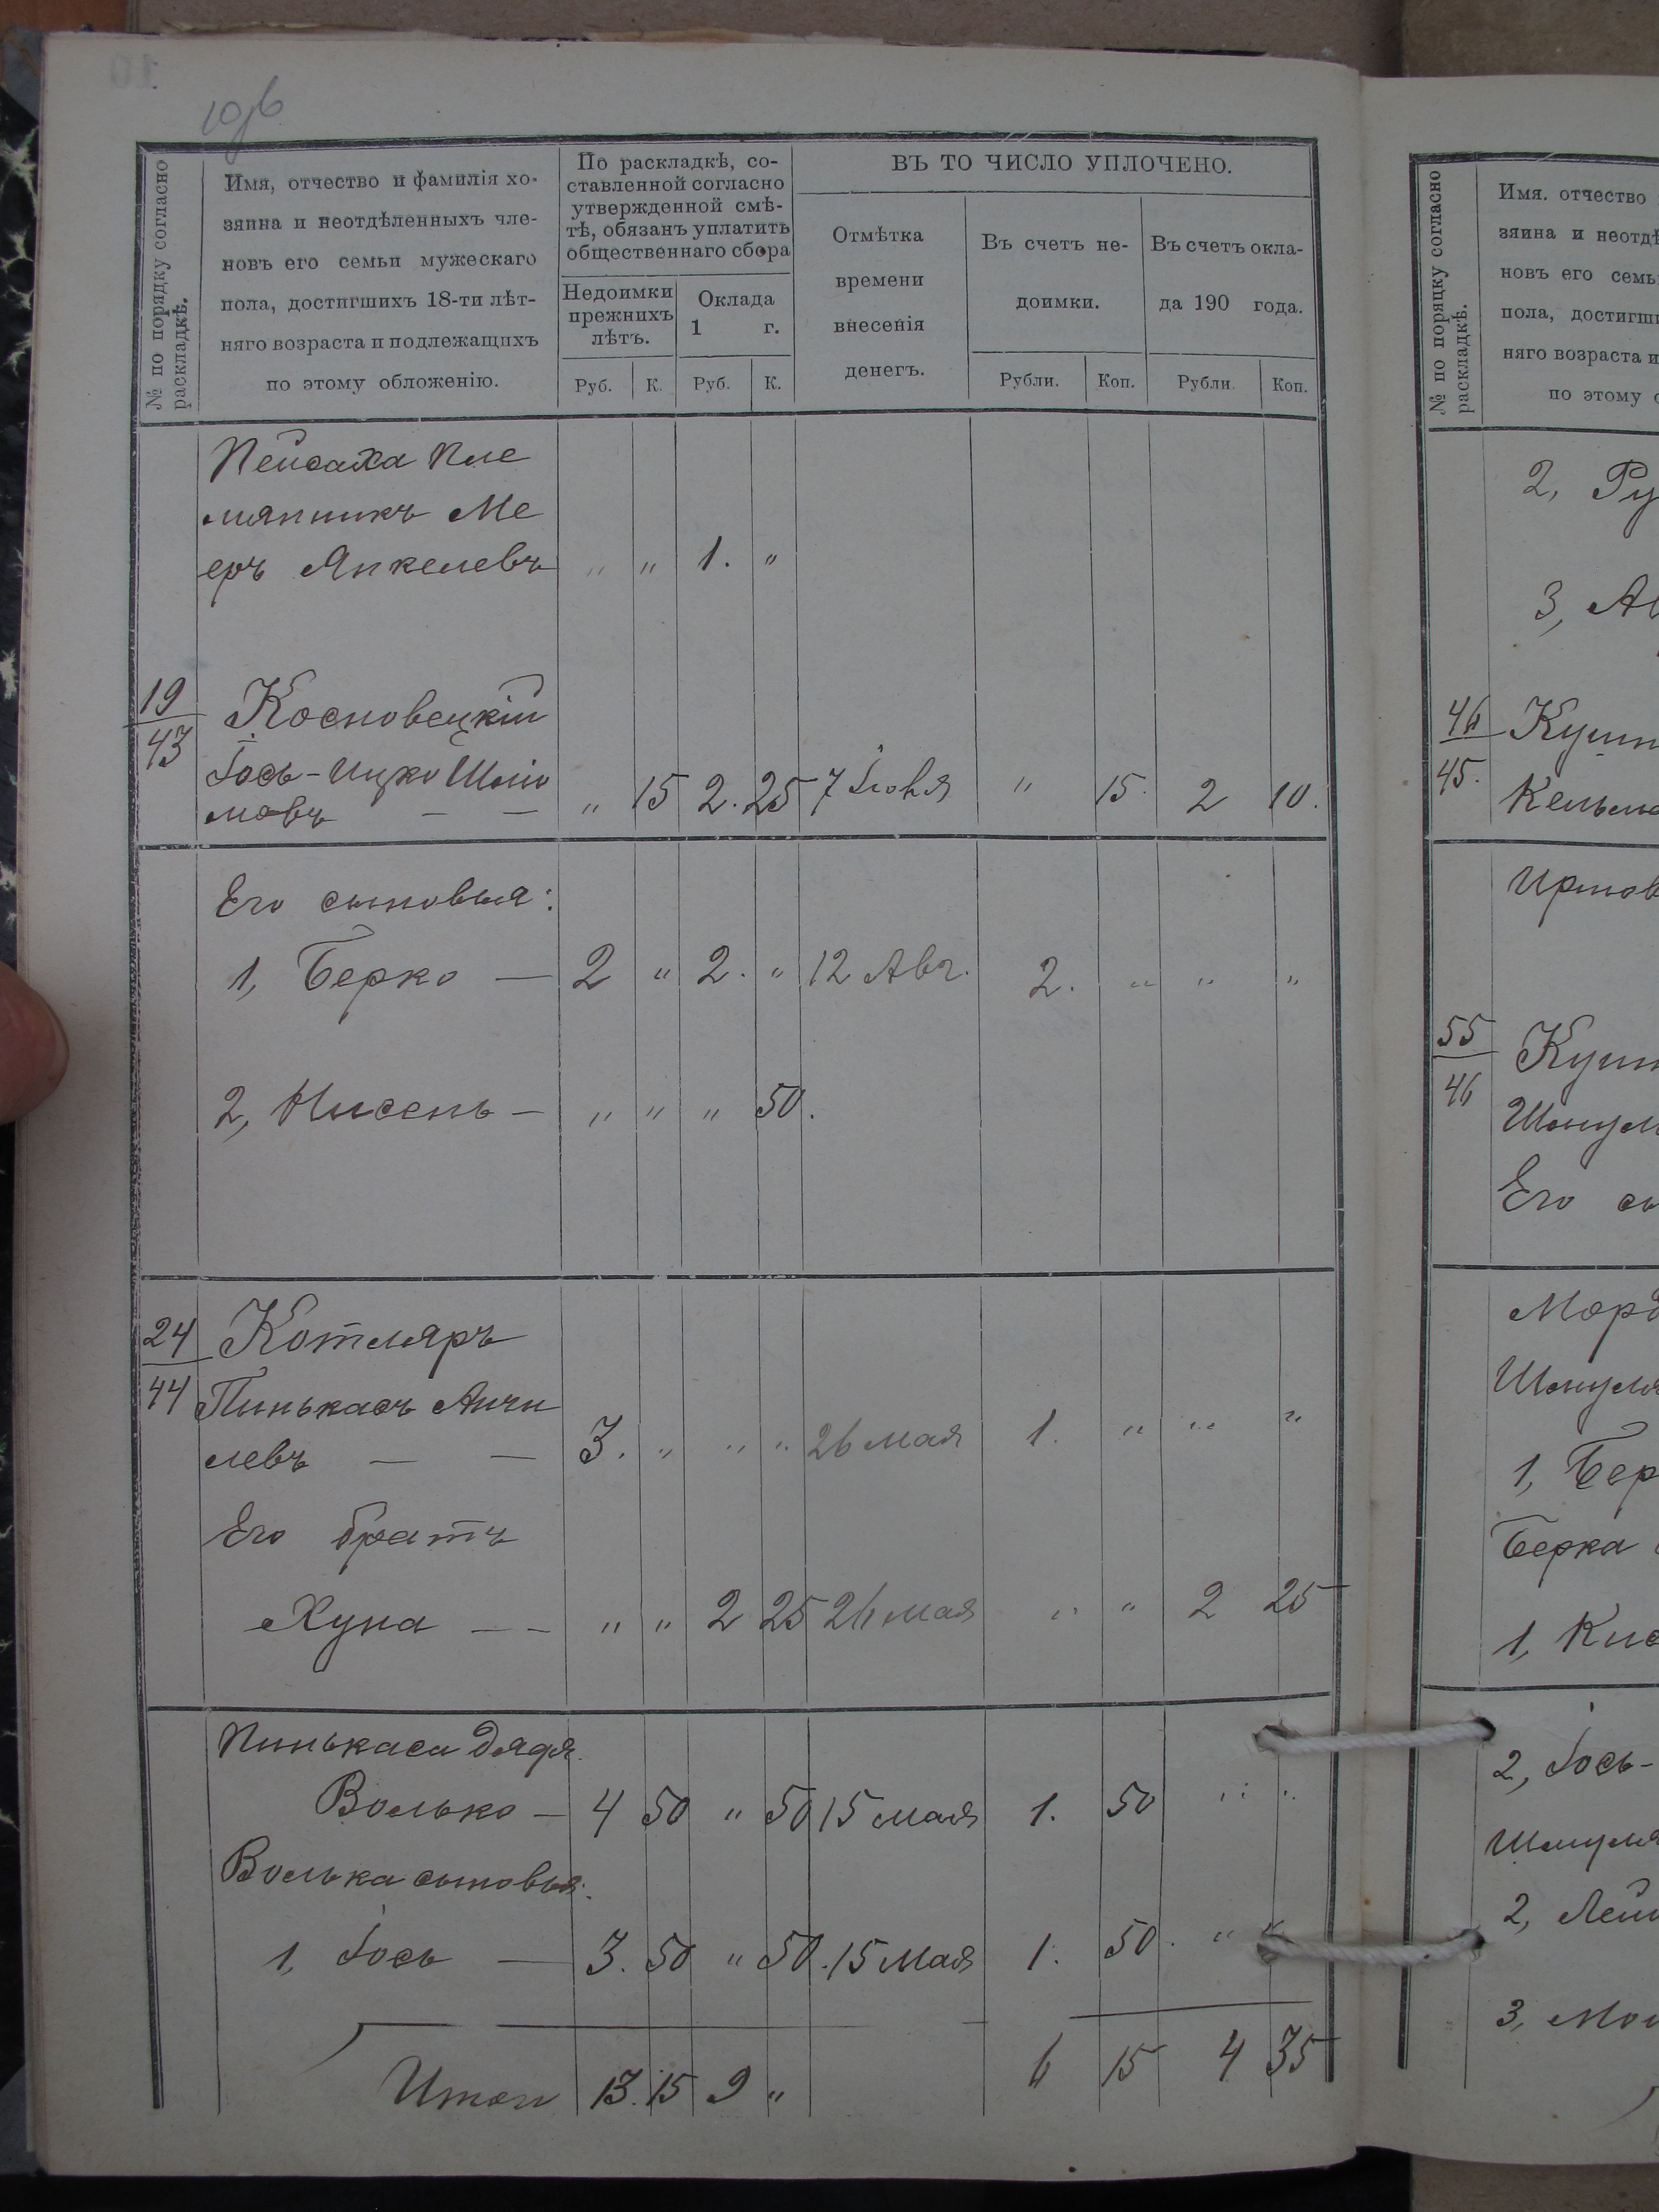 10об
№ по порядку согласно
раскладкѣ.
Имя, отчество и фамилія хо-
зяина и неотдѣленныхъ чле-
новъ его семьи мужескаго
пола, достигшихъ 18-ти лѣт-
няго возраста и подлежащихъ
по этому обложенію.
По раскладкѣ, со-
ставленной согласно
утвержденной смѣ-
тѣ, обязанъ уплатить
общественнаго сбора
Недоимки
прежнихъ
лѣтъ.
Оклада
1 г.
Руб. К. Руб. К.
ВЪ ТО ЧИСЛО УПЛОЧЕНО.
Отмѣтка
времени
внесенія
денегъ.
Въ счетъ не-
доимки.
Въ счетъ окла-
да 190 года.
Рубли. Коп. Рубли. Коп.
Пейсаха пле
мянникъ Ме
еръ Янкелевъ " " 1. "
19
43
Косновецкій
Іось-Ицко Шліо
мовъ — — " 15 2. 25 7 Іюля " 15. 2 10.
Его сыновья:
1, Берко — 2 " 2. " 12 Авг. 2. " " "
2, Нисень — " " " 50.
24
44
Котляръ
Пинькасъ Анчи
левъ — — 3. " " " 26 мая 1. " " "
Его братъ
Хуна — — " " 2 25 26 мая " " 2 25
Пинькаса дядя.
Волько — 4 50 " 50 15 мая 1. 50 " "
Волька сыновья:
1, Іось — 3. 50 " 50. 15 Мая 1. 50. " "
Итого 13. 15 9 " 6 15 4 35
№ по порядку согласно
раскладкѣ.
Имя. отчество
зяина и неотдѣ
новъ его семь
пола, достигши
няго возраста и
по этому
2, Ру
3, Ав
46
45.
Кушн
Кельма
Ицков
55
46
Кушн
Шмул
Его сы
Морд
Шмуля
1, Бер
Берка
1, Кис
2, Іось-
Шмуля
2, Лей
3, Мо